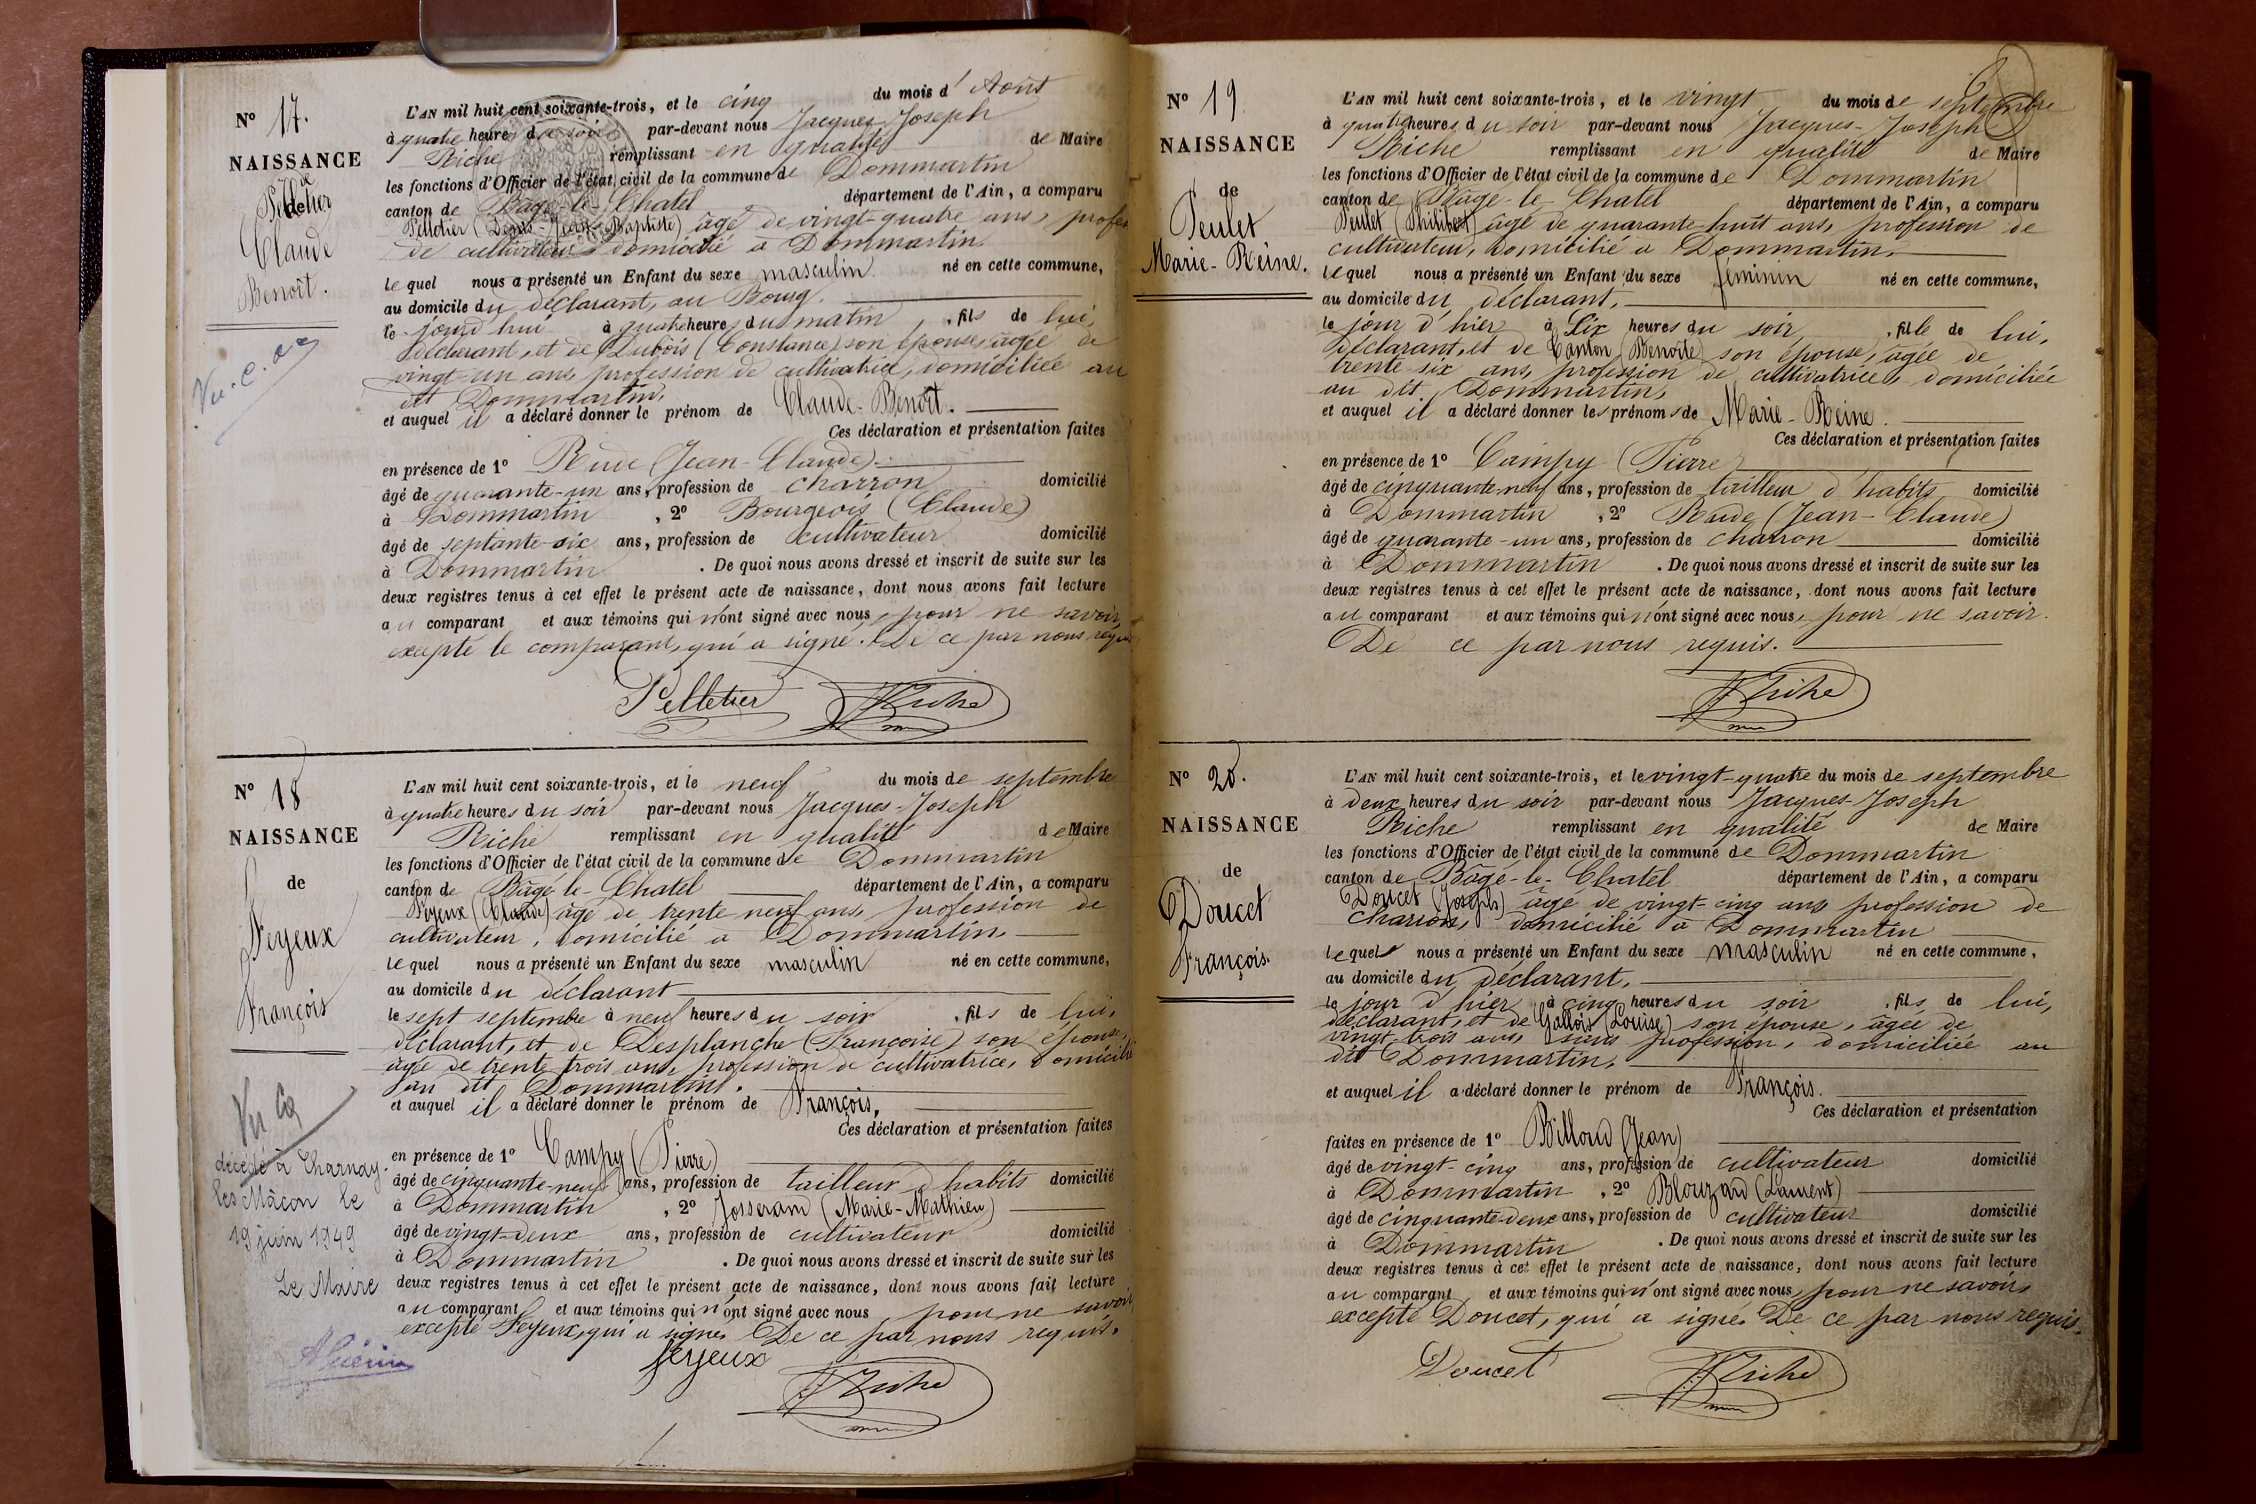 N° 17.
NAISSANCE
de
Pelletier
Claude
Benoît.
L'AN mil huit cent soixante-trois, et le cinq du mois d'Août
à quatre heures du soir par-devant nous Jacques-Joseph
Riche remplissant en qualité de Maire
les fonctions d'Officier de l'état civil de la commune de Dommartin
canton de Bâgé-le-Chatel département de l'Ain, a comparu
Pelletier (Denis-Jean-Baptiste) âgé de vingt-quatre ans, profes
de cultivateur domicilié à Dommartin
lequel nous a présenté un Enfant du sexe masculin né en cette commune,
au domicile du déclarant, au Bourg.
le jourd'hui à quatre heures du matin, fils de lui,
déclarant, et de Dubois (Constance) son épouse, âgée de
vingt-un ans, profession de cultivatrice, domiciliée au
dit Dommartin,
et auquel il a déclaré donner le prénom de Claude-Benoît.
Ces déclaration et présentation faites
en présence de 1° Rude (Jean-Claude)
âgé de quarante-un ans, profession de charron domicilié
à Dommartin, 2° Bourgeois (Claude)
âgé de septante-six ans, profession de cultivateur domicilié
à Dommartin. De quoi nous avons dressé et inscrit de suite sur les
deux registres tenus à cet effet le présent acte de naissance, dont nous avons fait lecture
au comparant et aux témoins qui n'ont signé avec nous, pour ne savoir,
excepté le comparant, qui a signé. De ce par nous requis
Pelletier JRiche
N° 18
NAISSANCE
de
Feyeux
François
décédé à Charnay
les Mâcon le
19 juin 1949
Le Maire
L'AN mil huit cent soixante-trois, et le neuf du mois de septembre
à quatre heures du soir par-devant nous Jacques-Joseph
Riche remplissant en qualité de Maire
les fonctions d'Officier de l'état civil de la commune de Dommartin
canton de Bâgé-le-Chatel département de l'Ain, a comparu
Feyeux (Claude) âgé de trente neuf ans, profession de
cultivateur, domicilié à Dommartin,
lequel nous a présenté un Enfant du sexe masculin né en cette commune,
au domicile du déclarant
le sept septembre à neuf heures du soir, fils de lui,
déclarant, et de Desplanche (Françoise) son épouse,
âgée de trente trois ans, profession de cultivatrice, domicilié
au dit Dommartin.
et auquel il a déclaré donner le prénom de François,
Ces déclaration et présentation faites
en présence de 1° Campy (Pierre)
âgé de cinquante-neuf ans, profession de tailleur d'habits domicilié
à Dommartin, 2° Josserand (Marie-Mathieu)
âgé de vingt-deux ans, profession de cultivateur domicilié
à Dommartin. De quoi nous avons dressé et inscrit de suite sur les
deux registres tenus à cet effet le présent acte de naissance, dont nous avons fait lecture
au comparant et aux témoins qui n'ont signé avec nous, pour ne savoir
excepté Feyeux, qui a signé. De ce par nous requis.
feyeux
JRiche
N° 19.
NAISSANCE
de
Peulet
Marie-Reine.
L'AN mil huit cent soixante-trois, et le vingt du mois de septembre
à quatre heures du soir par-devant nous Jacques-Joseph
Riche remplissant en qualité de Maire
les fonctions d'Officier de l'état civil de la commune de Dommartin
canton de Bâgé-le-Chatel département de l'Ain, a comparu
Peulet (Philibert) âgé de quarante-huit ans, profession de
cultivateur, domicilié à Dommartin,
lequel nous a présenté un Enfant du sexe féminin né en cette commune,
au domicile du déclarant,
le jour d'hier à Six heures du soir, fille de lui,
déclarant, et de Canton (Benoîte) son épouse, âgée de
trente six ans, profession de cultivatrice, domiciliée
au dit Dommartin,
et auquel il a déclaré donner les prénoms de Marie-Reine.
Ces déclaration et présentation faites
en présence de 1° Campy (Pierre)
âgé de cinquante-neuf ans, profession de tailleur d'habits domicilié
à Dommartin, 2° Rude (Jean-Claude)
âgé de quarante-un ans, profession de charron domicilié
à Dommartin. De quoi nous avons dressé et inscrit de suite sur les
deux registres tenus à cet effet le présent acte de naissance, dont nous avons fait lecture
au comparant et aux témoins qui n'ont signé avec nous, pour ne savoir.
De ce par nous requis.
JRiche
N° 20.
NAISSANCE
de
Doucet
François.
L'AN mil huit cent soixante-trois, et le vingt-quatre du mois de septembre
à deux heures du soir par-devant nous Jacques-Joseph
Riche remplissant en qualité de Maire
les fonctions d'Officier de l'état civil de la commune de Dommartin
canton de Bâgé-le-Chatel département de l'Ain, a comparu
Doucet (Joseph) âgé de vingt-cinq ans profession de
charron, domicilié à Dommartin
lequel nous a présenté un Enfant du sexe masculin né en cette commune,
au domicile du déclarant,
le jour d'hier à cinq heures du soir, fils de lui,
déclarant, et de Gallois (Louise) son épouse, âgée de
vingt-trois ans, sans profession, domiciliée au
dit Dommartin,
et auquel il a déclaré donner le prénom de François.
Ces déclaration et présentation
faites en présence de 1° Billoud (Jean)
âgé de vingt-cinq ans, profession de cultivateur domicilié
à Dommartin, 2° Blouzard (Laurent)
âgé de cinquante-deux ans, profession de cultivateur domicilié
à Dommartin. De quoi nous avons dressé et inscrit de suite sur les
deux registres tenus à cet effet le présent acte de naissance, dont nous avons fait lecture
au comparant et aux témoins qui n'ont signé avec nous, pour ne savoir,
excepté Doucet, qui a signé. De ce par nous requis.
Doucet JRiche